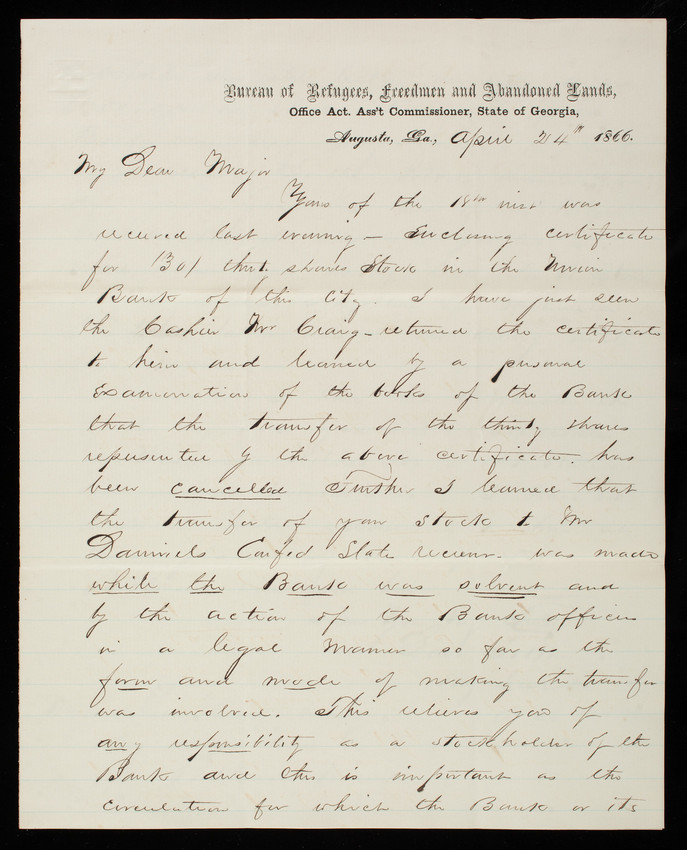 Bureau of Refugees, Freedmen and Abandoned Lands,
Office Act. Ass't Commissioner, State of Georgia,
Augusta, Ga., April 24th 1866.
My Dear Major
Yours of the 18th inst was
received last evening – Enclosing certificate
for (30) thirty shares Stock in the Union
Bank of this City. I have just seen
the Cashier Mr Craig – returned the certificate
to him and learned by a personal
examination of the books of the Bank
that the transfer of the thirty shares
represented by the above certificate has
been cancelled Further I learned that
the transfer of your stock to Mr
Danniels Confed State receiver was made
while the Bank was solvent and
by the action of the Bank officers
in a legal manner so far as the
form and mode of making the transfer
was involved. This relieves you of
any responsibility as a stockholder of the
Bank and this is important as the
circulation for which the Bank or its